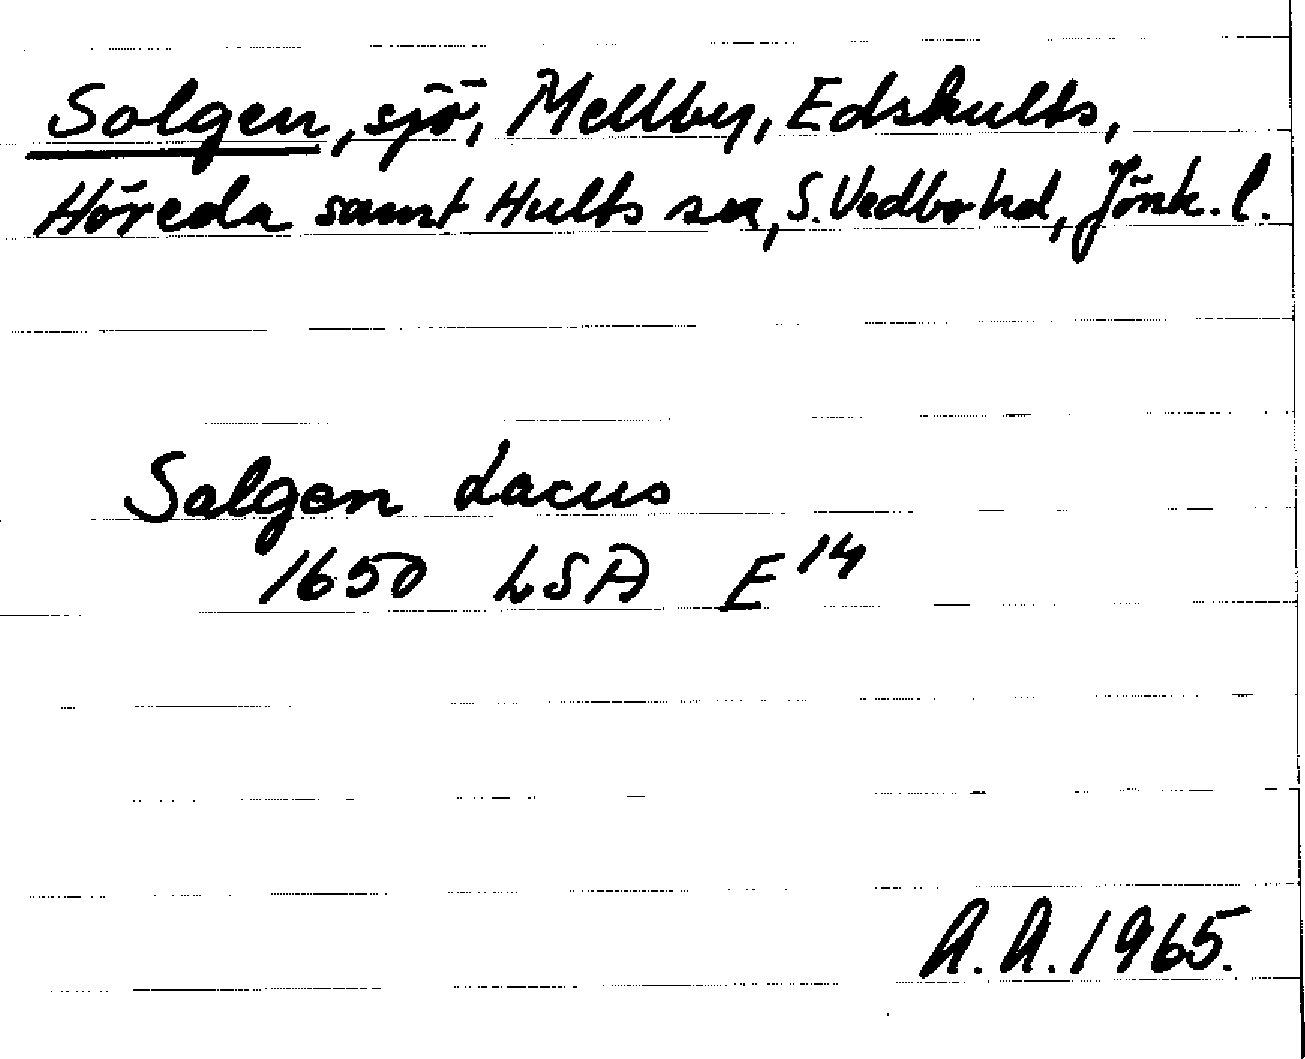 Solgen, sjö, Mellby, Edshults,
Höreda samt Hults sna, S. Vedbo hd, Jönk. l.
Salgen Lacus
1650 LSA E 14
A.A. 1965.